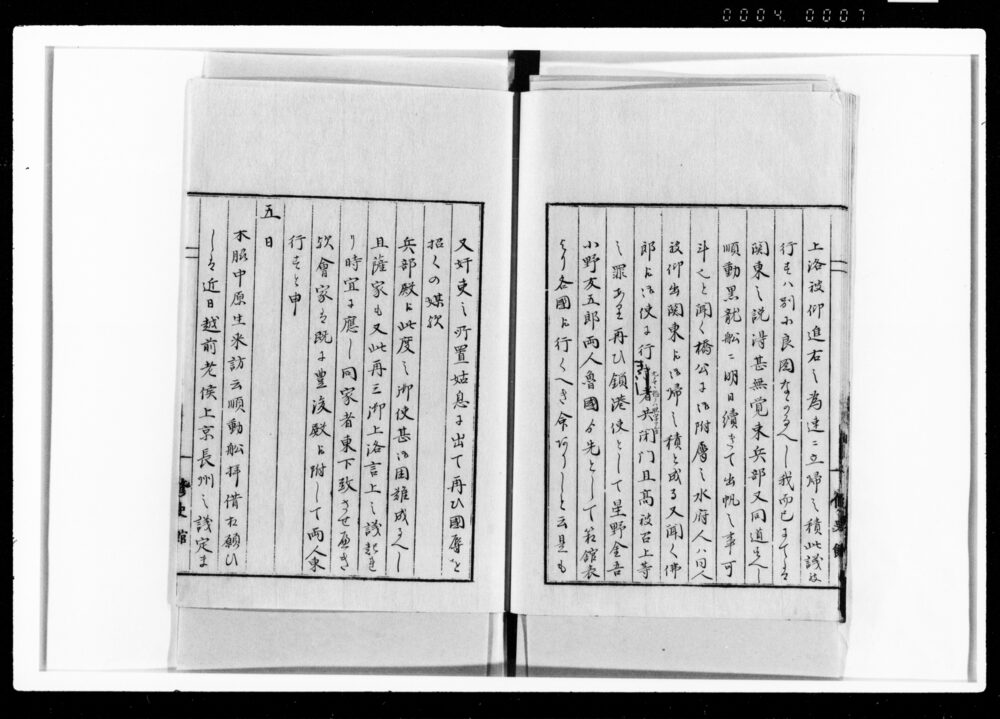 0004 0007
上洛被仰進右之為速ニ立帰之積此議故
行それハ別に良図なかるへし我而已まても
関東之説得甚無覚束兵部又同道足へし
順動黒龍船ニ明日続きて出帆之事可
斗也と聞く橋公にも御附属之水府人ハ同人
被仰出関東に御帰之積と成る又聞く佛
郎に御使に行者共閉門且高被召上等
之罪あり再ひ鎖港使として星野金吾
小野友五郎両人魯國より先として箱館表
より各國に行くへき命ありしと云是も
又奸吏之所置姑息に出て再ひ國辱を
招くの媒歟
兵部殿に此度之御使甚御困難成へし
且薩家も又此再三御上洛言上之議起れ
り時宜に應し同家者東下致させ可き
歟會家も既に豊後殿に附して両人東
行すと申
五日
木股中原生来訪云順動船拝借相願ひ
しも近日越前老侯上京長州之議定ま
修史館
修史館